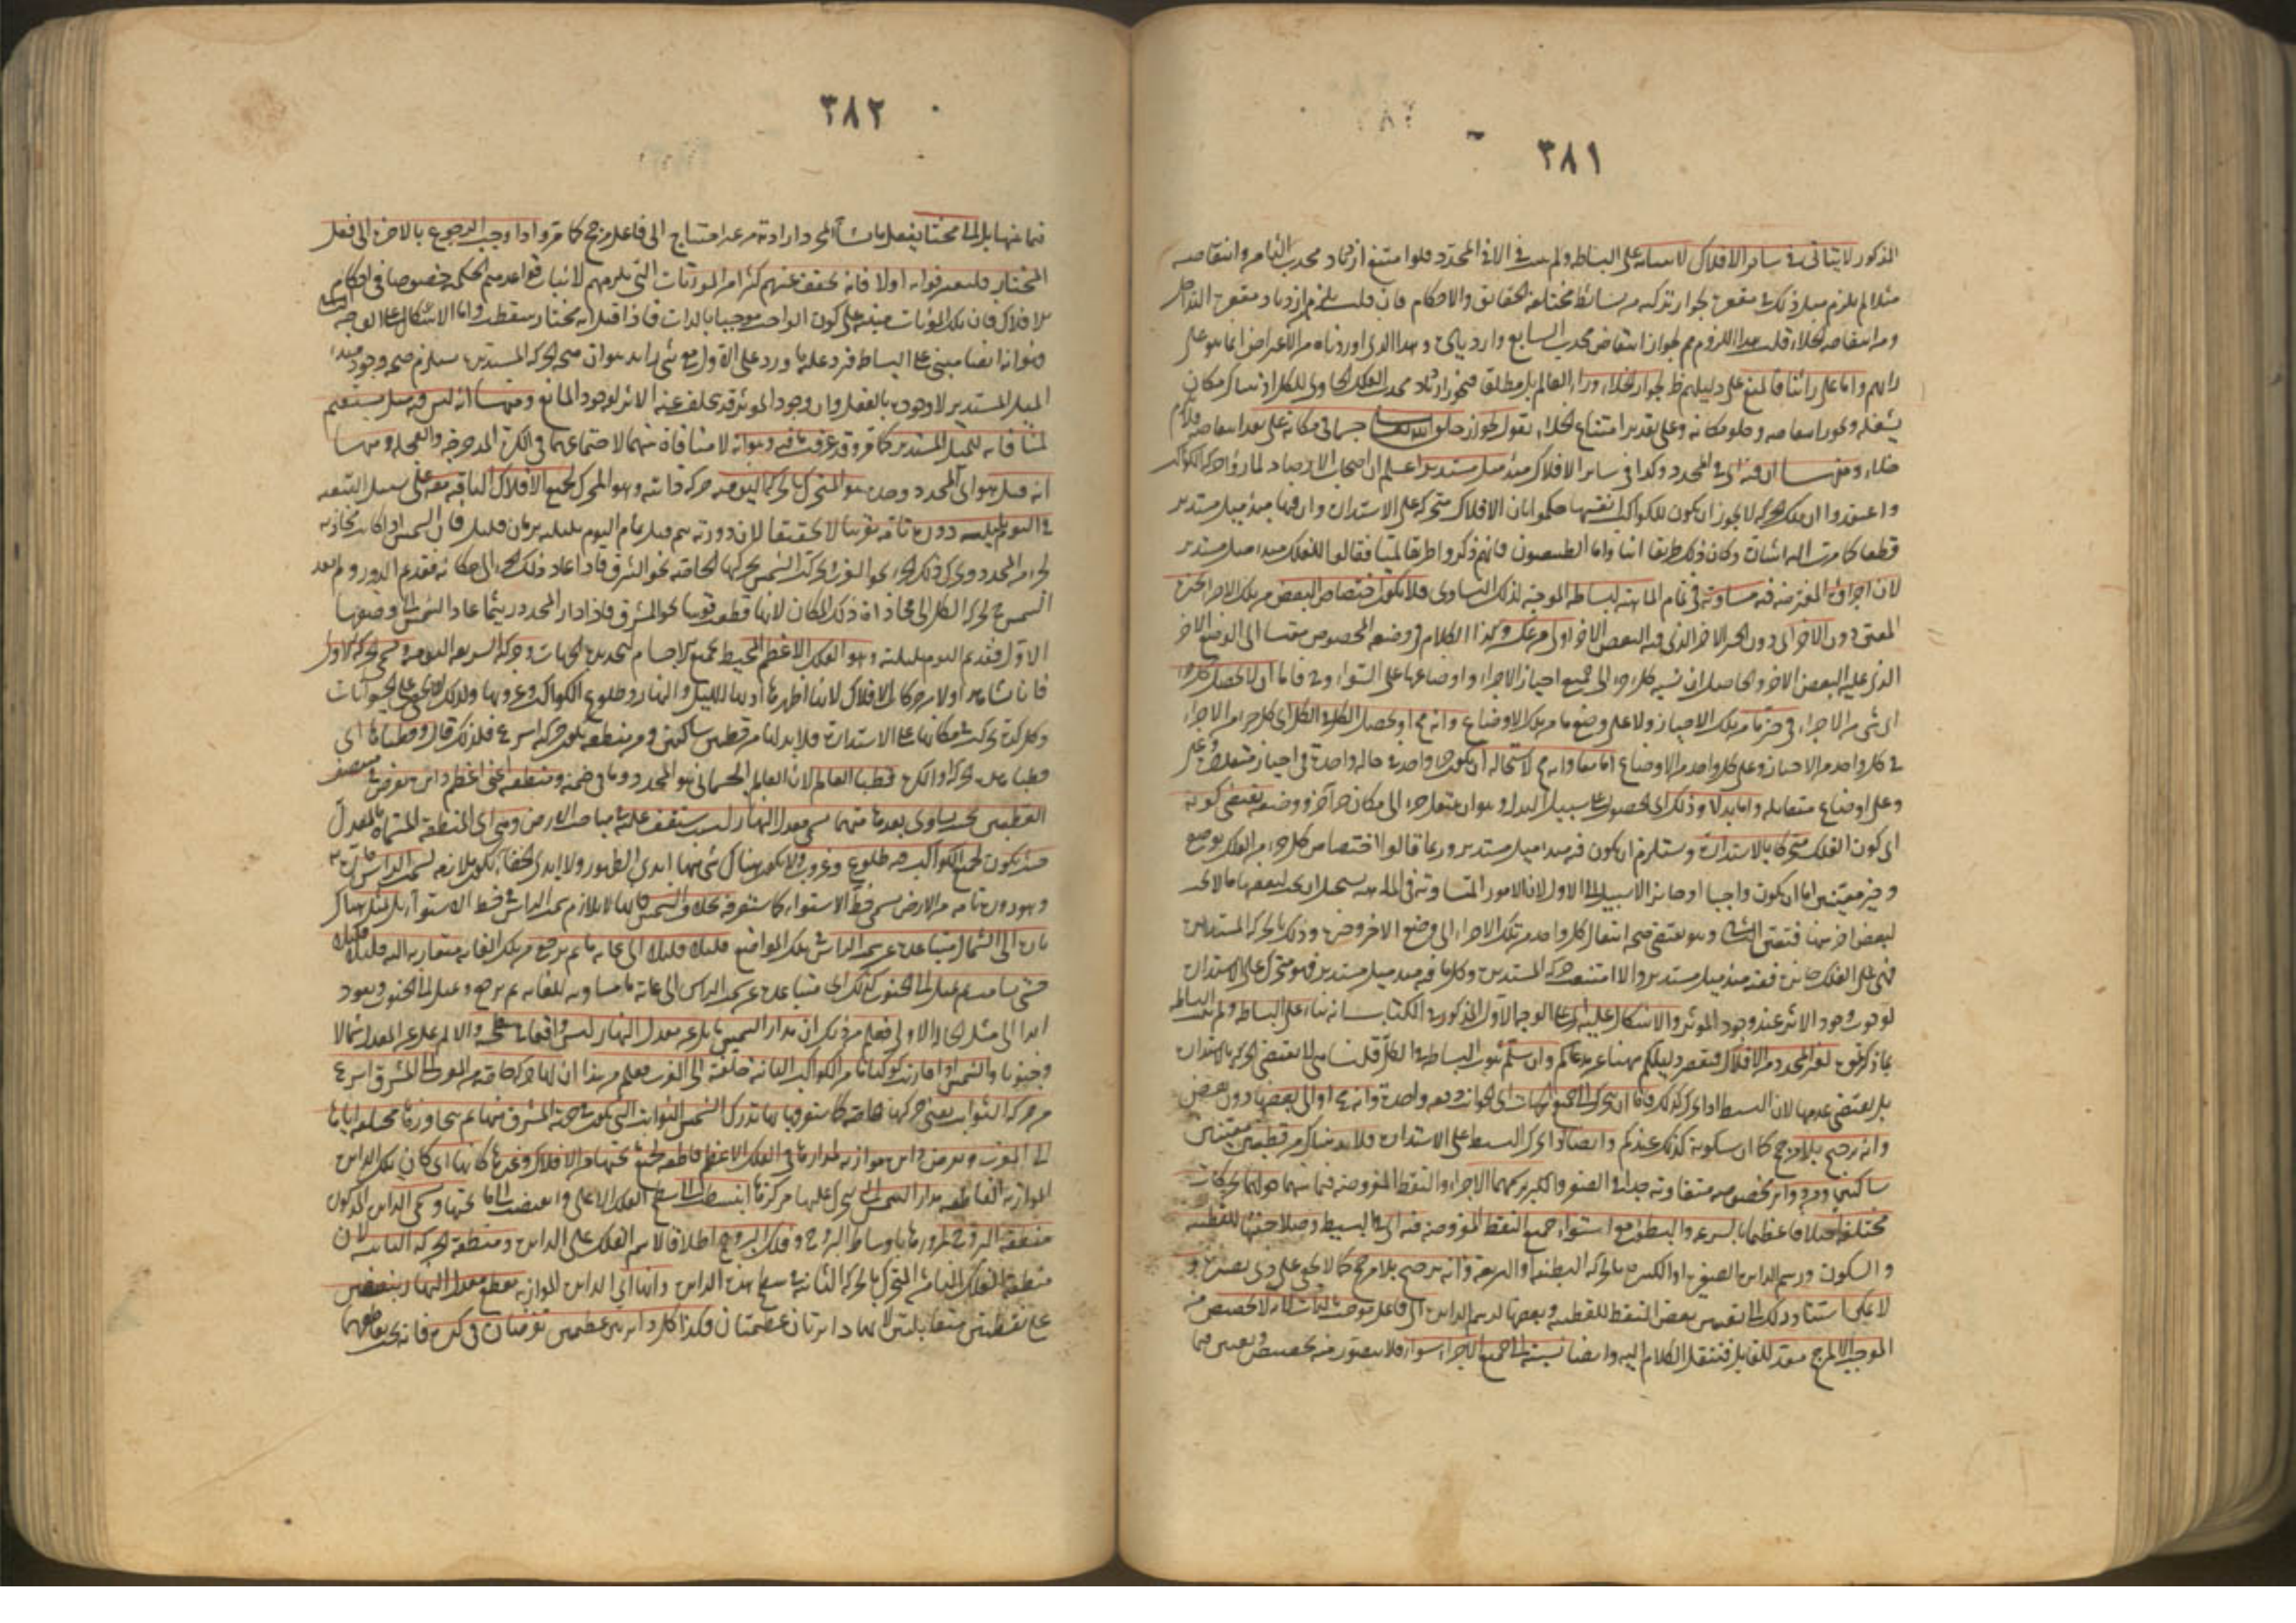 ٣٨١
المذكور لا يتأتى في سائر الافلاك لابتنائه على البساطة ولم يثبت في الافلاك المحدد فلو امتنع ازدياد محدب الثامن وانتقاصه
مثلا لم يلزم مثل ذلك في مقعره لجواز تركبه من بسائط مختلفة الحقائق والاحكام فان قلت يلزم من ازدياد مقعره التداخل
ومن انتقاصه الخلاء قلت هذا اللزوم مم لجواز انتقاض محدب السابع وازدياده وهذا الذي اوردناه من الاعتراض انما هو على
رايهم واما على رأينا فالمنع على دليلهم ظ بجواز الخلاء وراء العالم بل مطلقا فيجوز ازدياد محدب الفلك الحاوي للكل اذ هناك مكان
يشغله ويجوز انتقاصه وخلو مكانه وعلى تقدير امتناع الخلاء نقول يجوز ان يخلق الله تعالى جسما في مكانه على بعد انتقاصه فلا يلزم
خلاء ومنها ان فيه اي في المحدد وكذا في سائر الافلاك مبدأ ميل مستدير اعلم ان اصحاب الارصاد لما رأوا حركة الكواكب
واعتقدوا ان تلك الحركة لا يجوز ان يكون للكواكب انفسها حكموا بان الافلاك متحركة على الاستدارة وان فيها مبدأ ميل مستدير
قطعا كما مرت اليه اشارة وكان ذلك طريقا انيا واما الطبيعيون فانهم ذكروا طريقا لميا فقالوا للفلك مبدأ ميل مستدير
لان اجزاءه المفترضة فيه متساوية في تمام الماهية لبساطة الموجبة لذلك التساوي فلا يكون اختصاص البعض من تلك الاجزاء بحيزه
المعين دون الآخر اي دون الحيز الآخر الذي فيه البعض الآخر اولى من عكسه وكذا الكلام في وضعه المخصوص مقيسا الى الوضع الآخر
الذي عليه البعض الآخر والحاصل ان نسبة كل جزء الى جميع احياز الاجزاء واوضاعها على السواء وح فاما ان لا يحصل كل جزء
اي شيء من الاجزاء في حيز ما من تلك الاحياز ولا على وضع ما من تلك الاوضاع وانه مح او يحصل الكل في الكل اي كل جزء من الاجزاء
في كل واحد من الاحياز وعلى كل واحد من الاوضاع اما معا وانه مح لاستحالة ان يكون جزء واحد في حالة واحدة في احياز متعددة
وعلى اوضاع متقابلة واما بدلا وذلك اي الحصول على سبيل البدل وهو ان ينتقل جزء الى مكان جزء آخر ووضعه يقتضي كونه
اي كون الفلك متحركا بالاستدارة ويستلزم ان يكون فيه مبدأ ميل مستدير وربما قالوا اختصاص كل جزء من الفلك بوضع
وحيز معينين اما ان يكون واجبا او جائزا لا سبيل الى الاول لان الامور المتساوية في الماهية يستحيل ان يجب لبعضها ما لا يجب
لبعض آخر منها فتعين الثاني وهو يقتضي صحة انتقال كل واحد من تلك الاجزاء الى وضع الآخر وحيزه وذلك بالحركة المستديرة
فهي على الفلك جائزة ففيه مبدأ ميل مستدير والا امتنعت الحركة المستديرة وكل ما فيه مبدأ ميل مستدير فهو متحرك على الاستدارة
لوجوب وجود الاثر عند وجود المؤثر والاشكال عليه اي على الوجه الاول المذكور في الكتاب انه بناء على البساطة ولم يثبت البساطة
بما ذكرتموه لغير المحدد من الافلاك فيقصر دليلكم ههنا عن مدعاكم وان سلم ثبوت البساطة في الكل قلنا هي لا تقتضي الحركة بالاستدارة
بل يقتضي عدمها لان البسيط اذا تحرك كذلك فاما ان يتحرك الى جميع الجهات اي الجوانب دفعة واحدة وانه مح او الى بعضها دون بعض
وانه ترجيح بلا مرجح كما ان سكونه كذلك عندكم وايضا اذا تحرك البسيط على الاستدارة فلا بد هناك من قطبين معينين
ساكنين ودوائر مخصوصة متفاوتة جدا في الصغر والكبر يرسمها الاجزاء والنقط المفروضة فيما بينهما حولهما بحركات
مختلفة اختلافا عظيما بالسرعة والبطوء مع استواء جميع النقط المفروضة فيه اي في البسيط وصلاحيتها للقطبية
والسكون ورسم الدائرة الصغيرة او الكبيرة بالحركة البطيئة او السريعة وانه ترجيح بلا مرجح كما لا يخفى على ذي بصيرة و
لا يمكن استناد ذلك الى تعيين بعض النقط للقطبية وبعضها لرسم الدائرة الى فاعل موجب بالذات لانه لا تخصيص من
الموجب الا لمرجح معد للقابل فننقل الكلام اليه وايضا نسبته الى جميع الاجزاء سواء فلا يتصور منه تخصيص وتعيين فيما
٣٨٢
فيما بينها بل الى مختار يفعل ما يشاء بمجرد ارادته من غير احتياج الى فاعل مرجح كما مر واذا وجب الرجوع بالآخرة الى فعل
المختار فليعترفوا به اولا فانه يخفف عنهم كثيرا من المؤنات التي يلزمهم لاثبات قواعدهم الحكمية خصوصا في احكام
الافلاك فان تلك المؤنات مبنية على كون الواجب موجبا بالذات فاذا قيل انه مختار سقطت واما الاشكال على الوجه الثاني
فهو انه ايضا مبني على البساطة فيرد عليه ما ورد على الاول مع شيء زائد هو ان صحة الحركة المستديرة يستلزم صحة وجود مبدأ
الميل المستدير لا وجوده بالفعل وان وجود المؤثر قد يتخلف عنه الاثر لوجود المانع ومنها انه ليس فيه ميل مستقيم
لمنافاته للميل المستدير كما مر وقد عرفت ما فيه وهو انه لا منافاة بينهما لاجتماعهما في الكرة المدحرجة والعجلة ومنها
انه قيل هو اي المحدد وحده هو المتحرك بالحركة اليومية حركة ذاتية وهو المحرك لجميع الافلاك الباقية معه على سبيل التبعية
في اليوم بليلته دورة تامة تقريبا لا تحقيقا لان دورته يتم قبل تمام اليوم بليلته بزمان قليل فان الشمس اذا كانت محاذية
لجزء من المحدد وتحرك ذلك الجزء نحو الغرب تحركت الشمس بحركتها الخاصة نحو الشرق فاذا عاد ذلك الجزء الى مكانه فقد تم الدور ولم تعد
الشمس بحركة الكل الى محاذاة ذلك المكان لانها قطعت قوسا نحو المشرق فاذا دار المحدد ريثما عاد الشمس الى وضعها
الاول فقد تم اليوم بليلته وهو الفلك الاعظم المحيط بجميع الاجسام لتحديده الجهات وحركته السريعة اليومية وتسمى الحركة الاولى
فانا نشاهد اولا من حركات الافلاك لانها اظهرها اذ بها الليل والنهار وطلوع الكواكب وغروبها ولذلك لا تخفى على الحيوانات
وكل كرة تحركت في مكانها على الاستدارة فلا بد لها من قطبين ساكنين ومن منطقة يكون حركته اسرع فلذلك قال وقطباها اي
قطبا هذه الحركة او الكرة قطبا العالم لان العالم الجسماني هو المحدد وما في ضمنه ومنطقته اعني اعظم دائرة تفرض في منتصف
القطبين بحيث يساوي بعدها منهما تسمى معدل النهار لسبب ستقف عليه في مباحث الارض وهي اي المنطقة المسماة بالمعدل
حيث يكون لجميع الكواكب فيه طلوع وغروب ولا يكون هناك شيء منها ابدي الظهور ولا ابدي الخفاء يكون ملازمة لسمت الرأس
وهو دورة تامة من الارض تسمى خط الاستواء كما ستعرفه بحاله والشمس لا يلازم سمت الرأس في خط الاستواء بل تميل هناك
تارة الى الشمال متباعدة عن سمت الرأس في تلك المواضع قليلا قليلا الى غاية ما ثم يرجع من تلك الغاية متقاربة اليه قليلا قليلا
حتى يسامته ثم يميل الى الجنوب كذلك اي متباعدة عن سمت الرأس الى غاية ما مساوية للغاية ثم يرجع ويميل الى الجنوب ويعود
ابدا الى مثل الحالة الاولى فعلم من ذلك ان مدار الشمس مائل عن معدل النهار ليس واقعا في سطحه والا لم تمل عن المعدل شمالا
وجنوبا والشمس اذا قارنت كوكبا ما من الكواكب الثابتة خلفته الى الغرب فعلم من هذا ان لها حركة خاصة من الغرب الى المشرق اسرع
من حركة الثوابت يعني حركتها خاصة كما ستعرفها بها تدرك الشمس الثوابت التي يكون في جهة المشرق منها ثم تجاوزها مخلفة اياها
الى الغرب وتفرض دائرة موازية لمدارها في الفلك الاعظم قاطعة لجميع ما تحتها من الافلاك وغيرها كأنها اي كأن تلك الدائرة
الموازية القاطعة مدار الشمس التي يتحرك عليها مركزها انبسطت الى سطح الفلك الاعلى وانعطفت الى ما تحتها وتسمى الدائرة المذكورة
منطقة البروج لمرورها باوساط البروج وفلك البروج اطلاقا لاسم الفلك على الدائرة ومنطقة الحركة الثانية لان
منطقة الفلك الثامن المتحرك بالحركة الثانية في سطح هذه الدائرة وانها اي الدائرة الموازية تقطع معدل النهار بنصفين
على نقطتين متقابلتين لانهما دائرتان عظيمتان وهكذا كل دائرتين عظيمتين تفرضان في كرة فانه يجب تقاطعهما